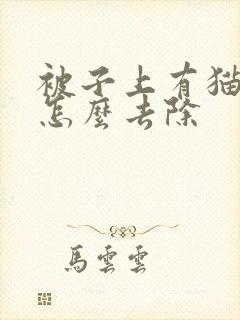 被子上有猫
怎麼去除
馬雲雲